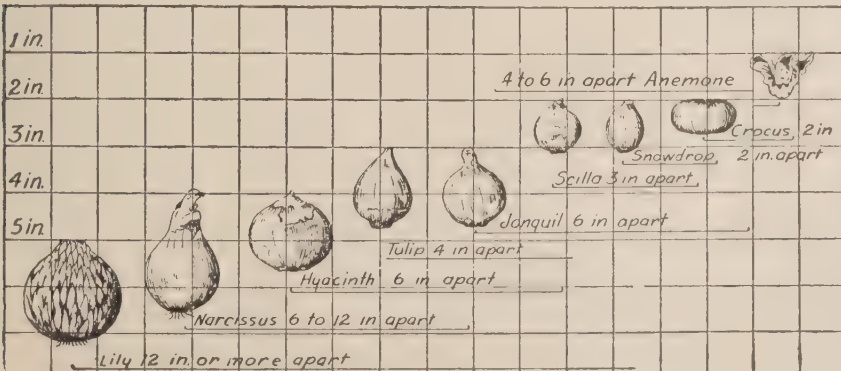 1 in.
2 in.
4 to 6 in apart Anemone
3 in.
Crocus, 2 in
Snowdrop, 2 in. apart
4 in.
Scilla 3 in apart
5 in.
Jonquil 6 in apart
Tulip 4 in apart
Hyacinth 6 in apart
Narcissus 6 to 12 in apart
Lily 12 in. or more apart